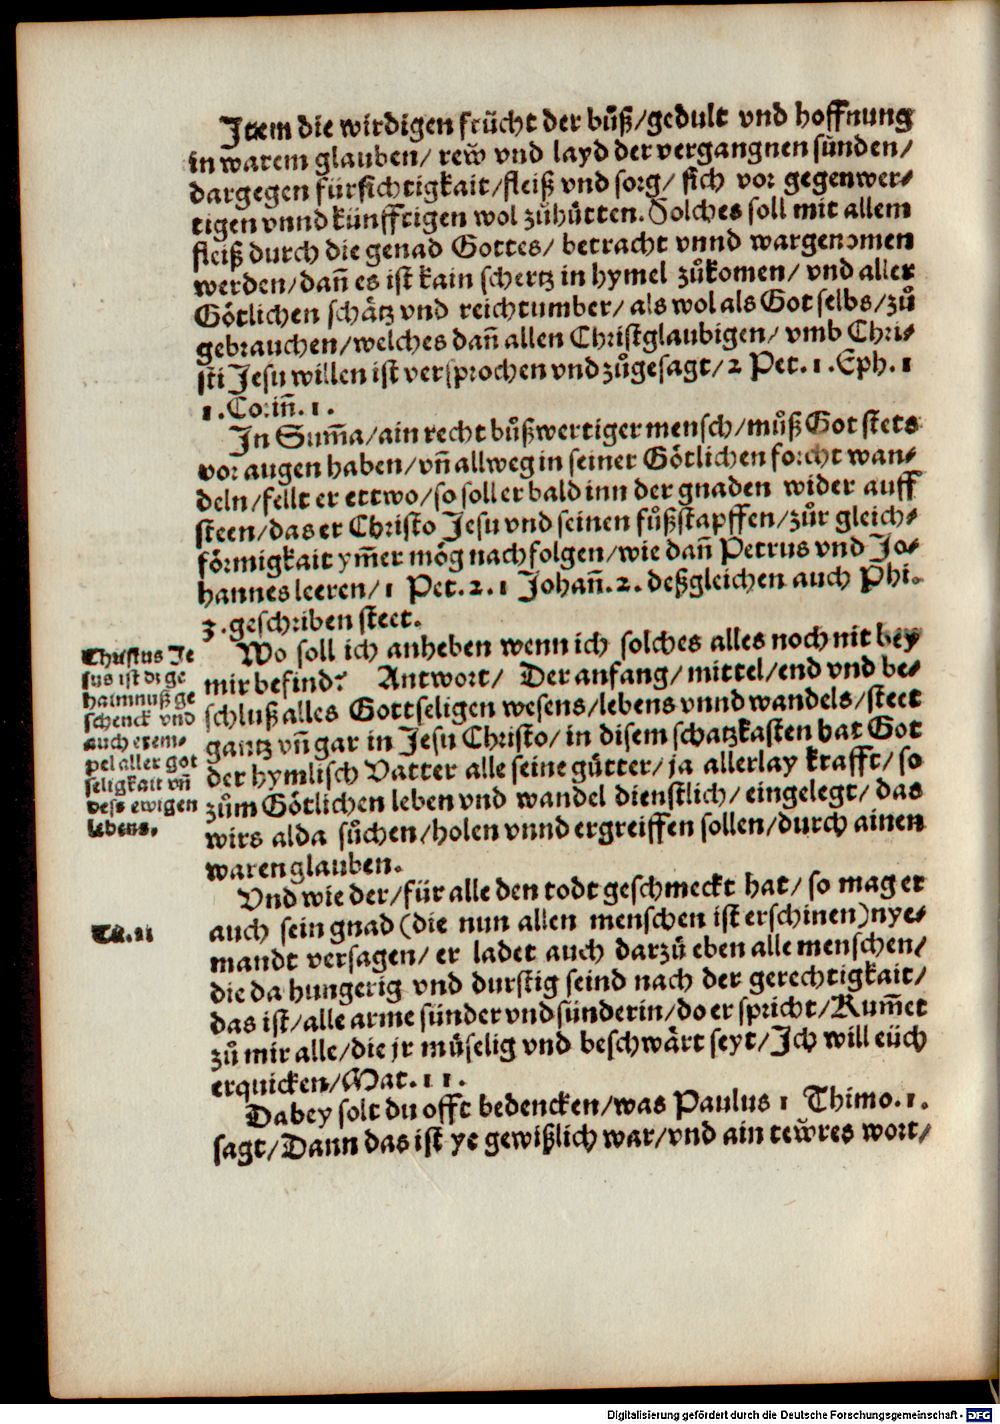 Item die wirdigen frücht der bůß/gedult vnd hoffnung
in warem glauben/ rew̆ vnd layd der vergangnen sünden/
dargegen fürsichtigkait/fleiß vnd sorg/ sich vor gegenwer-
tigen vnnd künfftigen wol zůhütten. Solches soll mit allem
fleiß durch die genad Gottes/ betracht vnnd wargenomen
werden/dañ es ist kain schertz in hymel zůkomen/ vnd aller
Götlichen schätz vnd reichtumber/ als wol als Got selbs/zů
gebrauchen/welches dañ allen Christglaubigen/ vmb Chri-
sti Jesu willen ist versprochen vnd zůgesagt/2 Pet. 1. Eph. 1
1. Coriñ. 1.
In Sum̃a/ain recht bůßwertiger mensch/můß Got stets
vor augen haben/vñ allweg in seiner Götlichen forcht wan-
deln/fellt er ettwo/so soll er bald inn der gnaden wider auff
steen/das er Christo Jesu vnd seinen fůßstapffen/zůr gleich-
förmigkait ym̃er mög nachfolgen/wie dañ Petrus vnd Jo-
hannes leeren/1 Pet. 2. 1 Johañ. 2. deßgleichen auch Phi.
3. geschriben steet.
Wo soll ich anheben wenn ich solches alles noch nit bey
mir befind? Antwort/ Der anfang/ mittel/end vnd be-
schluß alles Gottseligen wesens/lebens vnnd wandels/steet
gantz vñ gar in Jesu Christo/in disem schatzkasten hat Got
der hymlisch Vatter alle seine gütter/ja allerlay krafft/so
zům Götlichen leben vnd wandel dienstlich/ eingelegt/ das
wirs alda sůchen/holen vnnd ergreiffen sollen/durch ainen
waren glauben.
Christus Je
sus ist dz ge
haimnuß ge
schenck vnd
auch exem-
pel aller got
seligkait vñ
dess ewigen
lebens.
Vnd wie der/für alle den todt geschmeckt hat/ so mag er
auch sein gnad (die nun allen menschen ist erschinen)nye-
mandt versagen/ er ladet auch darzů eben alle menschen/
die da hungerig vnd durstig seind nach der gerechtigkait/
das ist/alle arme sünder vnd sünderin/do er spricht/Kum̃et
zů mir alle/die jr müselig vnd beschwärt seyt/Ich will eüch
erquicken/Mat. 11.
Tit. ii
Dabey solt du offt bedencken/was Paulus 1 Thimo. 1.
sagt/Dann das ist ye gewißlich war/vnd ain tew̆res wort/
Digitalisierung gefördert durch die Deutsche Forschungsgemeinschaft - DFG